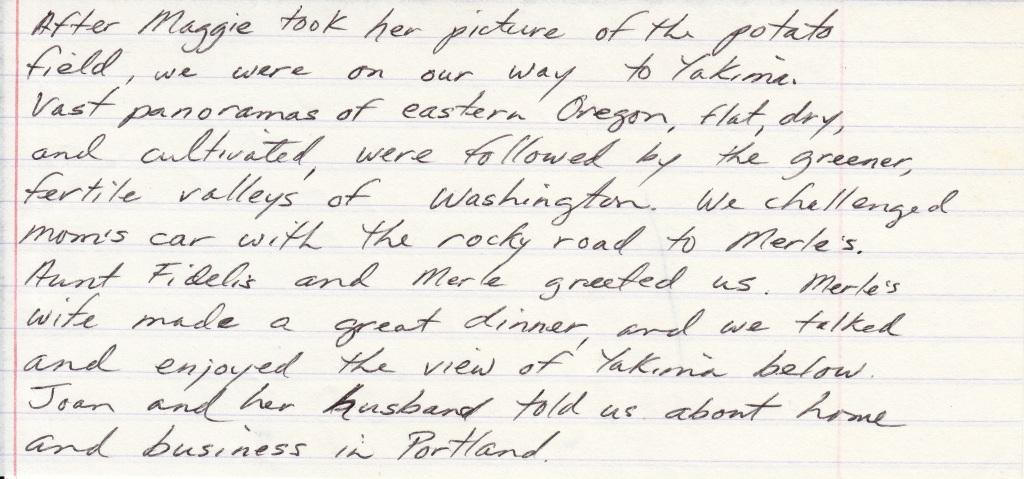 After Maggie took her picture of the potato
field, we were on our way to Yakima.
Vast panoramas of eastern Oregon, flat, dry,
and cultivated, were followed by the greener,
fertile valleys of Washington. We challenged
mom's car with the rocky road to Merle's.
Aunt Fidelis and Merle greeted us. Merle's
wife made a great dinner, and we talked
and enjoyed the view of Yakima below.
Joan and her husband told us about home
and business in Portland.